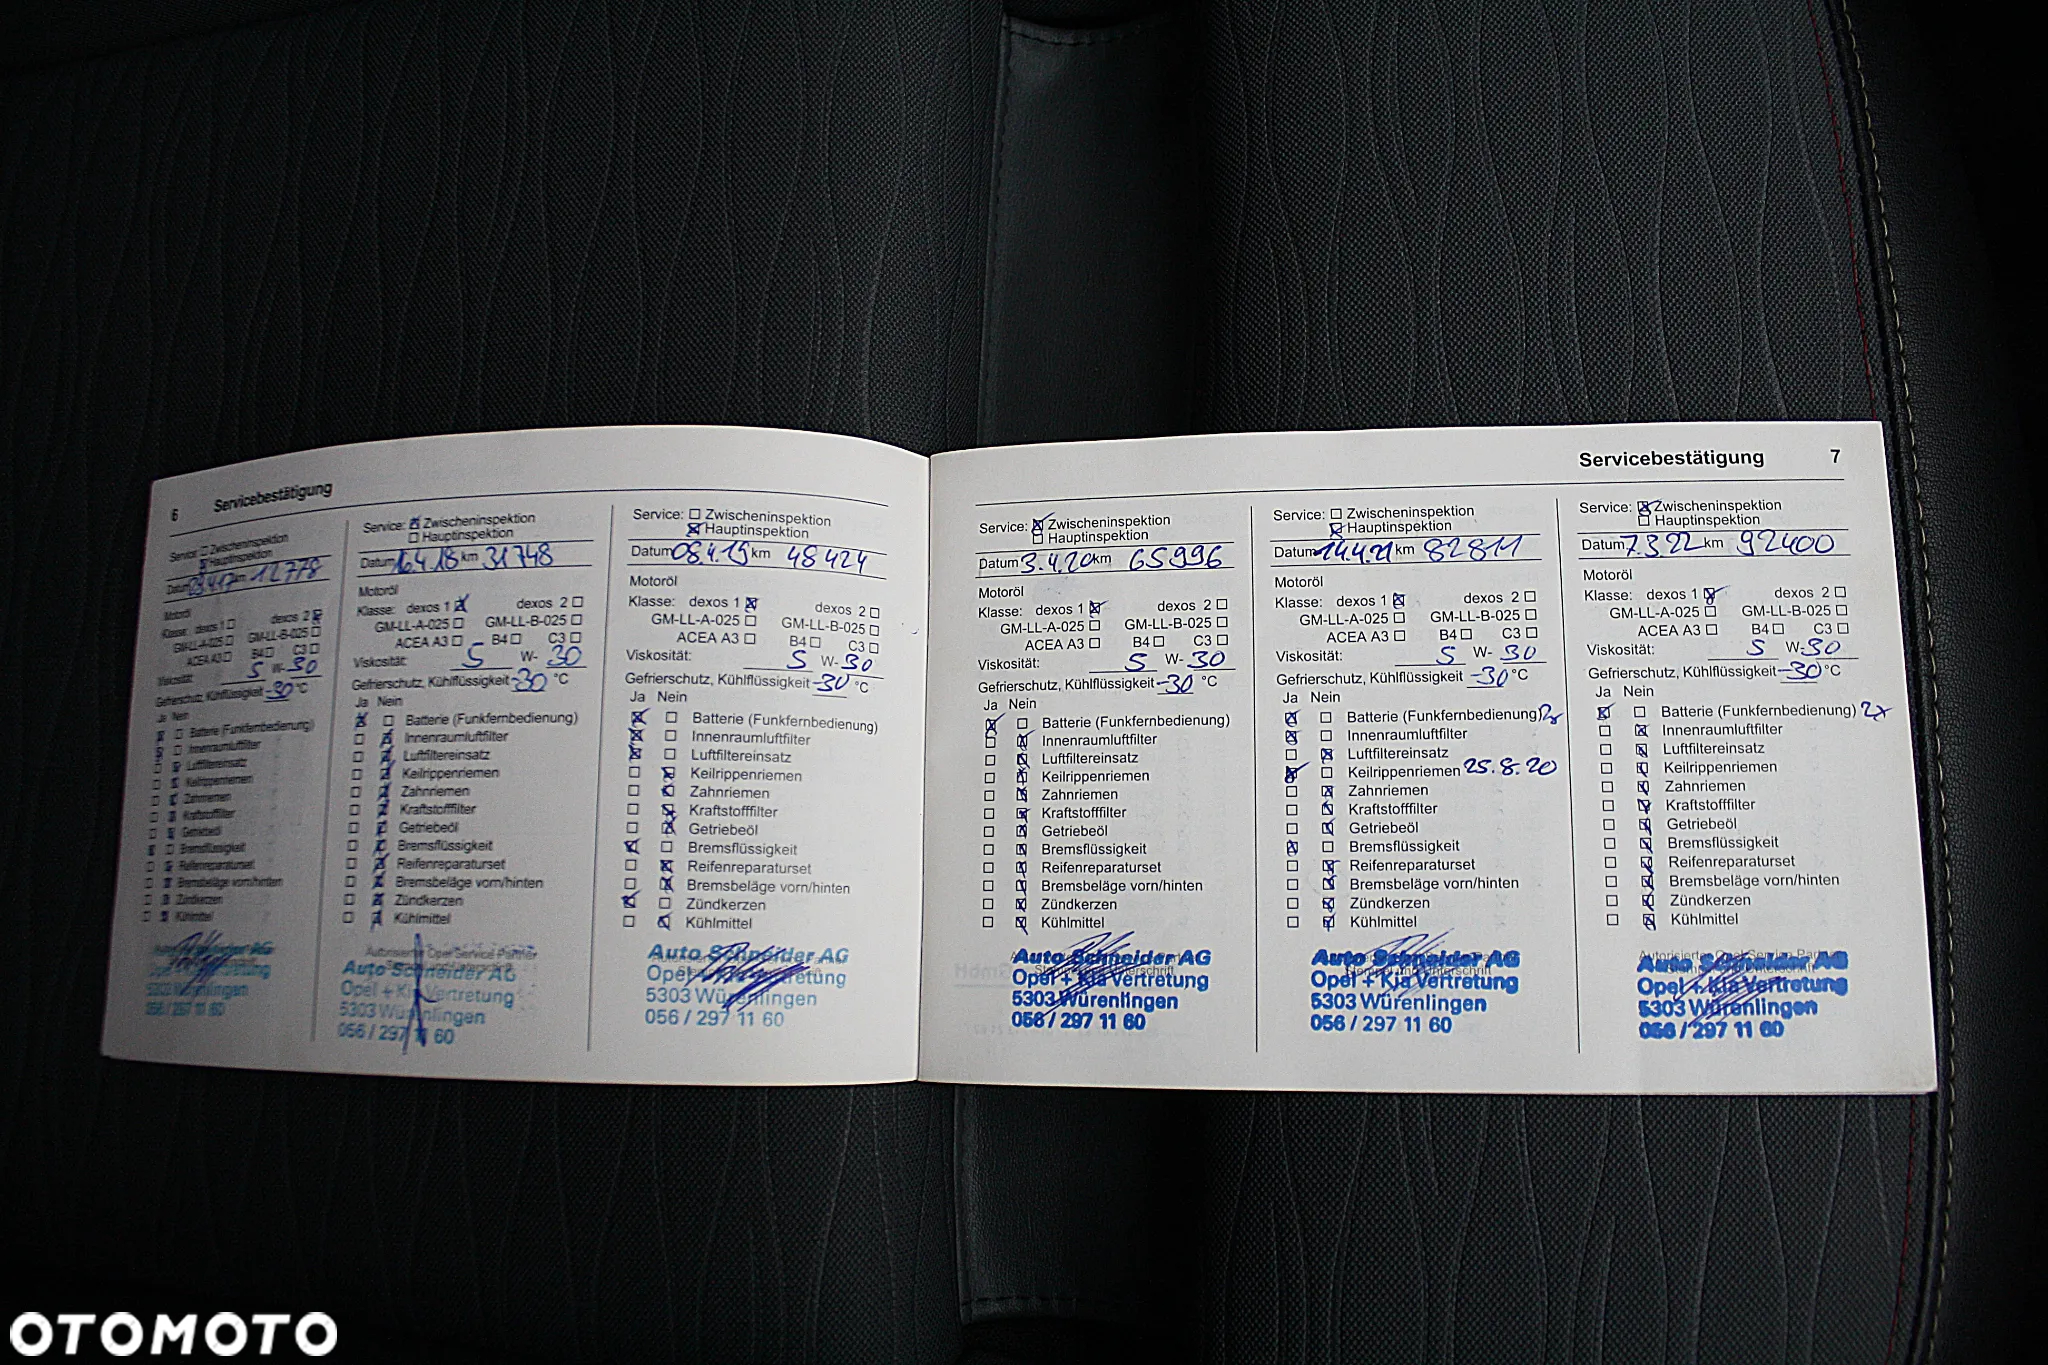 6 Servicebestätigung
Service: Zwischeninspektion
Hauptinspektion
Datum 03.4.17 km 12778
Motoröl
Klasse: dexos 1 dexos 2
GM-LL-A-025 GM-LL-B-025
ACEA A3 B4 C3
Viskosität: 5 W-30
Gefrierschutz, Kühlflüssigkeit -30 °C
Ja Nein
Batterie (Funkfernbedienung)
Innenraumluftfilter
Luftfiltereinsatz
Keilrippenriemen
Zahnriemen
Kraftstofffilter
Getriebeöl
Bremsflüssigkeit
Reifenreparaturset
Bremsbeläge vorn/hinten
Zündkerzen
Kühlmittel
AG
5303 Würenlingen
056 / 297 11 60
Service: Zwischeninspektion
Hauptinspektion
Datum 16.4.18 km 31748
Motoröl
Klasse: dexos 1 dexos 2
GM-LL-A-025 GM-LL-B-025
ACEA A3 B4 C3
Viskosität: 5 W- 30
Gefrierschutz, Kühlflüssigkeit -30 °C
Ja Nein
Batterie (Funkfernbedienung)
Innenraumluftfilter
Luftfiltereinsatz
Keilrippenriemen
Zahnriemen
Kraftstofffilter
Getriebeöl
Bremsflüssigkeit
Reifenreparaturset
Bremsbeläge vorn/hinten
Zündkerzen
Kühlmittel
Autorisierter Opel Service Partner
Auto Schneider AG
Opel + Kia Vertretung
5303 Würenlingen
056 / 297 11 60
Service: Zwischeninspektion
Hauptinspektion
Datum 08.4.19 km 48424
Motoröl
Klasse: dexos 1 dexos 2
GM-LL-A-025 GM-LL-B-025
ACEA A3 B4 C3
Viskosität: 5 W-30
Gefrierschutz, Kühlflüssigkeit -30 °C
Ja Nein
Batterie (Funkfernbedienung)
Innenraumluftfilter
Luftfiltereinsatz
Keilrippenriemen
Zahnriemen
Kraftstofffilter
Getriebeöl
Bremsflüssigkeit
Reifenreparaturset
Bremsbeläge vorn/hinten
Zündkerzen
Kühlmittel
Auto Schneider AG
Opel + Kia Vertretung
5303 Würenlingen
056 / 297 11 60
Servicebestätigung 7
Service: Zwischeninspektion
Hauptinspektion
Datum 3.4.20 km 65996
Motoröl
Klasse: dexos 1 dexos 2
GM-LL-A-025 GM-LL-B-025
ACEA A3 B4 C3
Viskosität: 5 W- 30
Gefrierschutz, Kühlflüssigkeit -30 °C
Ja Nein
Batterie (Funkfernbedienung)
Innenraumluftfilter
Luftfiltereinsatz
Keilrippenriemen
Zahnriemen
Kraftstofffilter
Getriebeöl
Bremsflüssigkeit
Reifenreparaturset
Bremsbeläge vorn/hinten
Zündkerzen
Kühlmittel
Auto Schneider AG
Opel + Kia Vertretung
5303 Würenlingen
056 / 297 11 60
Service: Zwischeninspektion
Hauptinspektion
Datum 14.4.21 km 82811
Motoröl
Klasse: dexos 1 dexos 2
GM-LL-A-025 GM-LL-B-025
ACEA A3 B4 C3
Viskosität: 5 W- 30
Gefrierschutz, Kühlflüssigkeit -30 °C
Ja Nein
Batterie (Funkfernbedienung)
Innenraumluftfilter
Luftfiltereinsatz
Keilrippenriemen 25.8.20
Zahnriemen
Kraftstofffilter
Getriebeöl
Bremsflüssigkeit
Reifenreparaturset
Bremsbeläge vorn/hinten
Zündkerzen
Kühlmittel
Auto Schneider AG
Opel + Kia Vertretung
5303 Würenlingen
056 / 297 11 60
Service: Zwischeninspektion
Hauptinspektion
Datum 7.3.22 km 92400
Motoröl
Klasse: dexos 1 dexos 2
GM-LL-A-025 GM-LL-B-025
ACEA A3 B4 C3
Viskosität: 5 W-30
Gefrierschutz, Kühlflüssigkeit -30 °C
Ja Nein
Batterie (Funkfernbedienung) 2x
Innenraumluftfilter
Luftfiltereinsatz
Keilrippenriemen
Zahnriemen
Kraftstofffilter
Getriebeöl
Bremsflüssigkeit
Reifenreparaturset
Bremsbeläge vorn/hinten
Zündkerzen
Kühlmittel
Autorisierter Opel Service Partner
Auto Schneider AG
Opel + Kia Vertretung
5303 Würenlingen
056 / 297 11 60
OTOMOTO